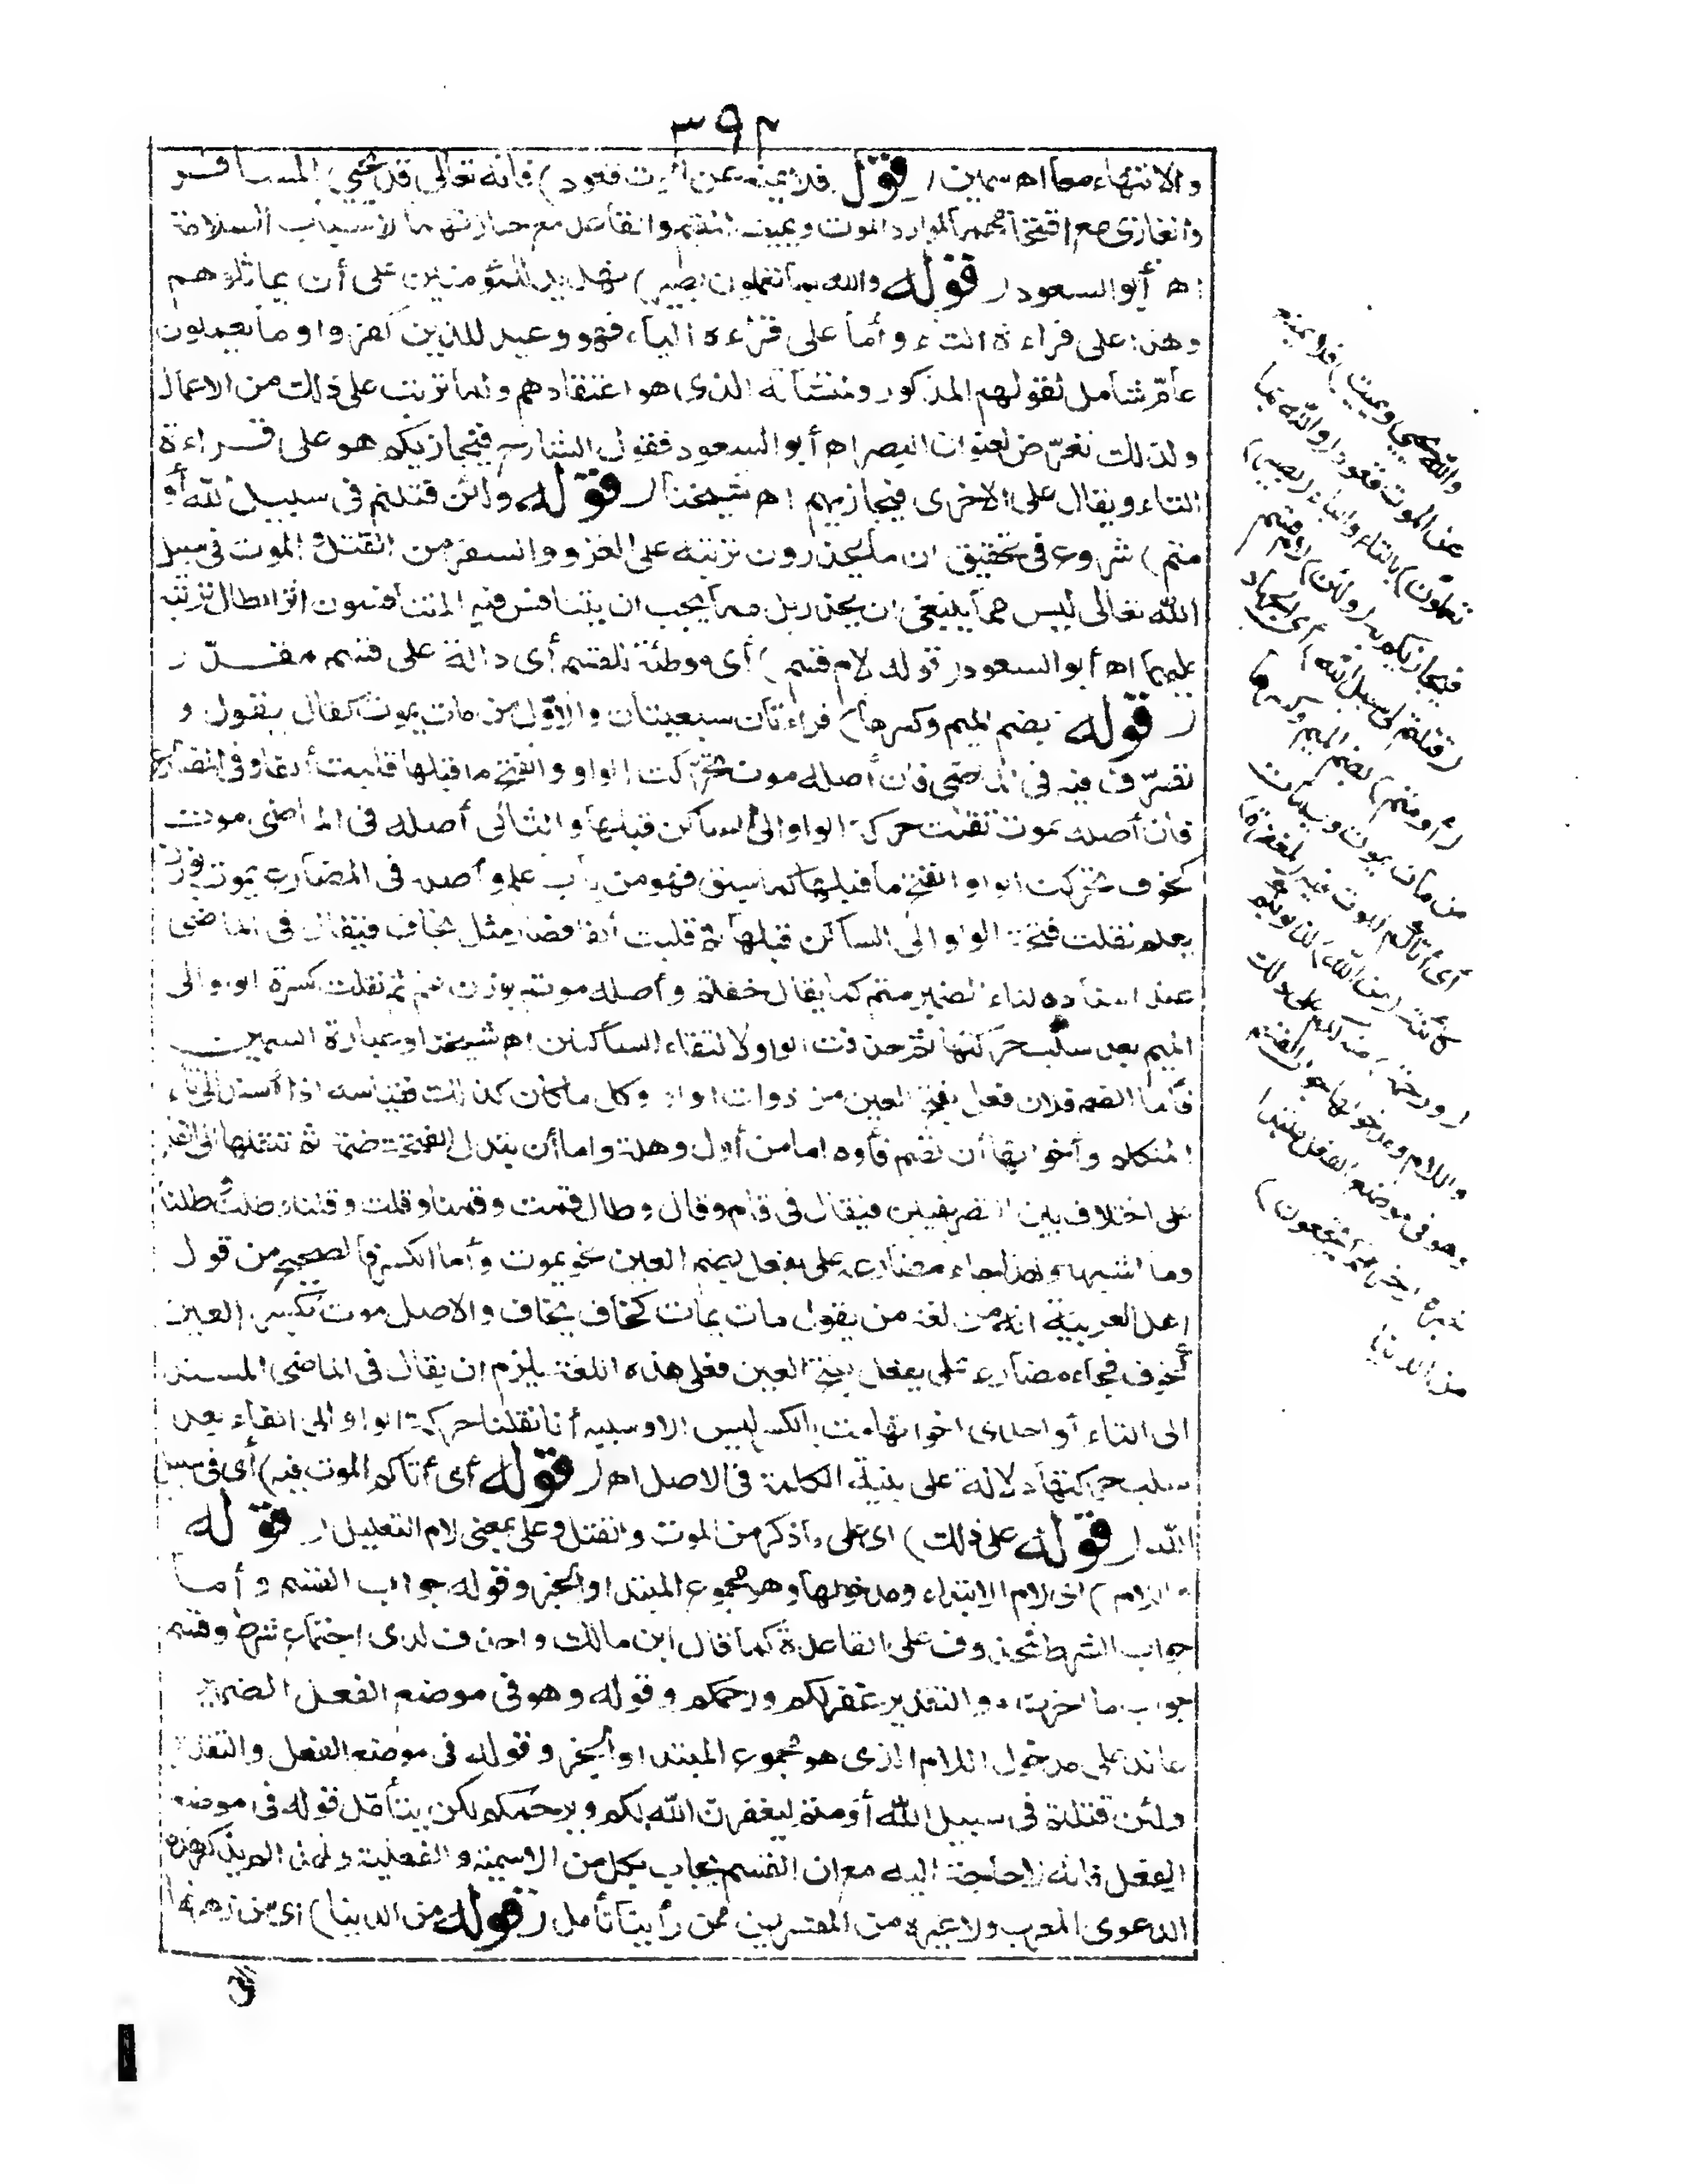 ٣٩٢
والانتهاء معا اه سمين (قوله فلا يمنع عن الموت قعود) فانه تعالى قد يحيى المسافر
والغازى مع اقتحامهما لموارد الموت ويميت المقيم والقاعد مع حيازتهما لاسباب السلامة
اه أبو السعود (قوله والله بما تعملون بصير) تهديد للمؤمنين على أن يماثلوهم
وهذا على قراءة التاء وأما على قراءة الياء فهو وعيد للذين كفروا وما يعملون
عام شامل لقولهم المذكور ومنشئه الذى هو اعتقادهم ولما ترتب على ذلك من الاعمال
ولذلك تعرض لعنوان البصر اه أبو السعود فقول الشارح فيجازيكم هو على قراءة
التاء ويقال على الاخرى فيجازيهم اه شيخنا (قوله ولئن قتلتم فى سبيل الله أو
متم) شروع فى تحقيق ان ما يحذرون ترتبه على الغزو والسفر من القتل والموت فى سبيل
الله تعالى ليس مما ينبغى ان يحذر بل مما يجب ان يتنافس فيه المتنافسون اثر ابطال ترتبه
عليهما اه أبو السعود (قوله لام قسم) أى موطئة للقسم أى دالة على قسم مقدر
(قوله بضم الميم وكسرها) قراءتان سبعيتان والاول من مات يموت كقال يقول و
تصرف فيه فى الماضى فان أصله موت تحركت الواو وانفتح ما قبلها قلبت ألفا وفى المضارع
فان أصله يموت نقلت حركة الواو الى الساكن قبلها والثانى أصله فى الماضى موت
كخوف تحركت الواو وانفتح ما قبلها كما سبق فهو من باب علم وأصله فى المضارع يموت بوزن
يعلم نقلت فتحة الواو الى الساكن قبلها ثم قلبت ألفا فصار مثل يخاف فيقال فى الماضى
عند اسناده لتاء الضمير متم كما يقال خفتم وأصله موتم بوزن ثم نقلت كسرة الواو الى
الميم بعد سلب حركتها ثم حذفت الواو لالتقاء الساكنين اه شيخنا وعبارة السمين
فأما الضم فلان فعل بفتح العين من ذوات الواو وكل ما كان كذلك فقياسه اذا أسند الى تاء
المتكلم وأخواتها أن تضم فاؤه اما من أول وهلة واما أن يبدل الفتحة ضمة ثم تنقلها الى الفاء
على اختلاف بين التصريفيين فيقال فى قام وقال وطال قمت وقمنا وقلت وقلنا وطلت وطلنا
وما اشبهها ولهذا جاء مضارعه على يفعل بضم العين نحو يموت وأما الكسر فالصحيح من قول
اهل العربية انه من لغة من يقول مات يمات كخاف يخاف والاصل موت بكسر العين
كخوف فجاء مضارعه على يفعل بفتح العين فعلى هذه اللغة يلزم ان يقال فى الماضى المسند
الى التاء أو احدى اخواتها مت بالكسر ليس الا وسببه أنا نقلنا حركة الواو الى الفاء بعد
سلب حركتها دلالة على بنية الكلمة فى الاصل اه (قوله أى أتاكم الموت فيه) أى فى سبيل
الله (قوله على ذلك) اى على ما ذكر من الموت والقتل وعلى بمعنى لام التعليل (قوله
واللام) اى لام الابتداء ومدخولها وهو مجموع المبتدا والخبر وقوله جواب القسم وأما
جواب الشرط محذوف على القاعدة كما قال ابن مالك واحذف لدى اجتماع شرط وقسم
جواب ما اخرت والتقدير غفر لكم ورحمكم وقوله وهو فى موضع الفعل الضمير
عائد على مدخول اللام الذى هو مجموع المبتدا والخبر وقوله فى موضع الفعل والتقدير
ولئن قتلتم فى سبيل الله أو متم ليغفرن الله لكم ويرحمكم لكن يتأمل قوله فى موضع
الفعل فانه لا حاجة اليه مع ان القسم يجاب بكل من الاسمية والفعلية ولهذا لم يذكر هذه
الدعوى المعرب ولا غيره من المفسرين ممن رأينا تأمل (قوله من الدنيا) اى من زهرتها
والله يحيى ويميت) فلا يمنع
عن الموت قعود (والله بما
تعملون) بالتاء والياء (بصير)
فيجازيكم به (ولئن) لام قسم
(قتلتم فى سبيل الله) أى الجهاد
(أو متم) بضم الميم وكسرها
من مات يموت ويمات
أى أتاكم الموت فيه (لمغفرة)
كائنة (من الله) لذنوبكم
(ورحمة) منه لكم على ذلك
واللام ومدخولها جواب القسم
وهو فى موضع الفعل مبتدا
خبره (خير مما تجمعون)
من الدنيا